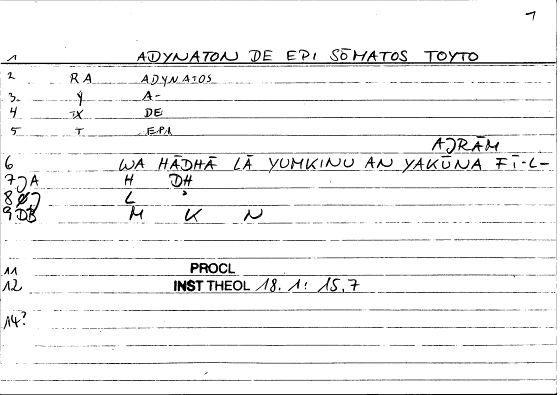 7
1 ADYNATON DE EPI SŌMATOS TOYTO
2 RA ADYNATOS
3 Y A-
4 TX DE
5 T EPI
AJRĀM
6 WA HĀDHĀ LĀ YUMKINU AN YAKŪNA FĪ-L-
7 JA H DH
8 L
9 DB M K N
11 PROCL
12 INST THEOL 18. 1: 15.7
14?